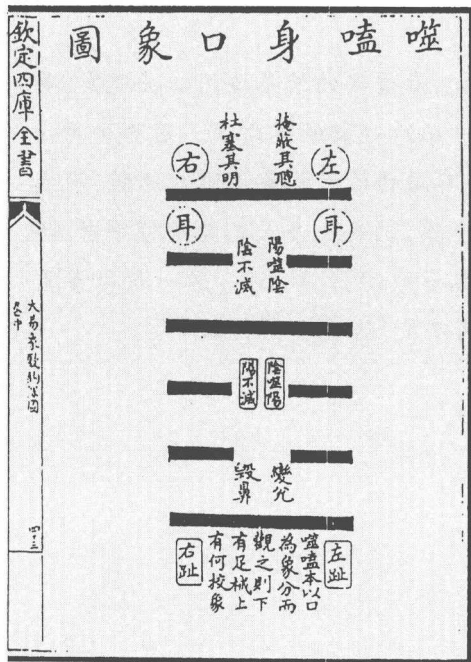 噬嗑身口象圖
左耳
掩蔽其聰
杜塞其明
右耳
陽噬陰
陰不滅
陰噬陽
陽不滅
變兊
毀鼻
左趾
噬嗑本以口
為象分而
觀之則下
有足械上
有何挍象
右趾
欽定四庫全書
大易象數鈎深圖
卷中
四十三